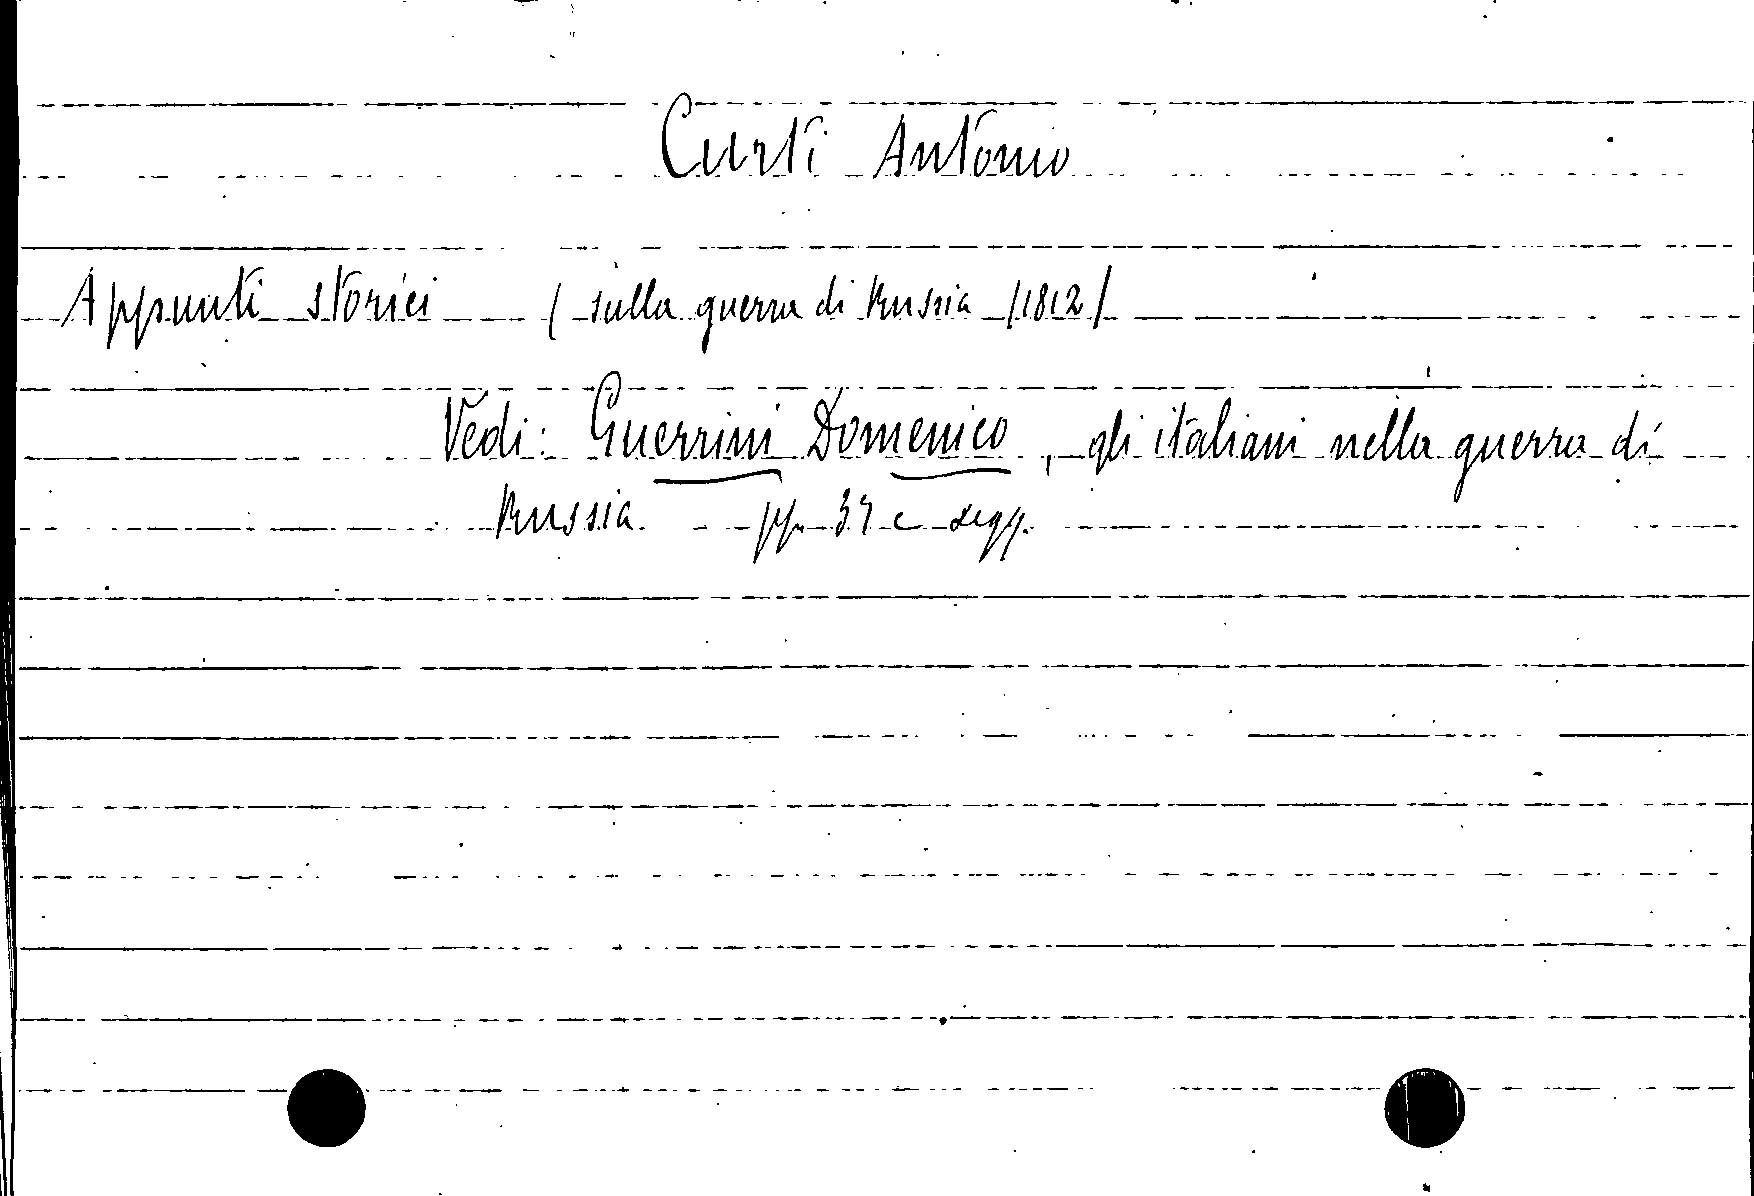 Curti Antonio
Appunti storici ( sulla guerra di Russia (1812)
Vedi: Guerrini Domenico, gli italiani nella guerra di
Russia pp. 37 e segg.